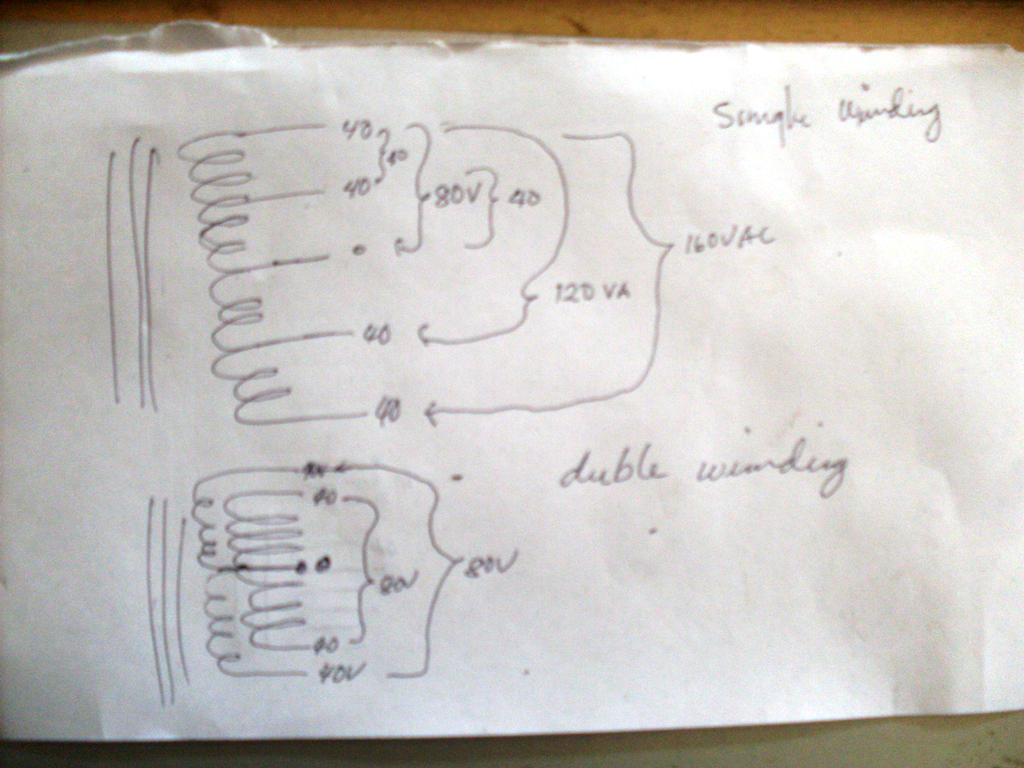 Single winding
40
40
40
80V
40
0
160VAC
120 VA
40
40
duble winding
40
0
80V
80V
40
40V